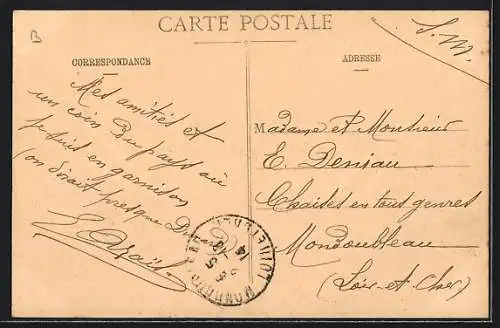 B
CARTE POSTALE
S.M.
CORRESPONDANCE
ADRESSE
Mes amitiés et
un coin du pays où
je suis en garnison
on dirait presque
Madame et Monsieur
E. Deniau
Chaises en tous genres
Mondoubleau
(Loir et Cher)